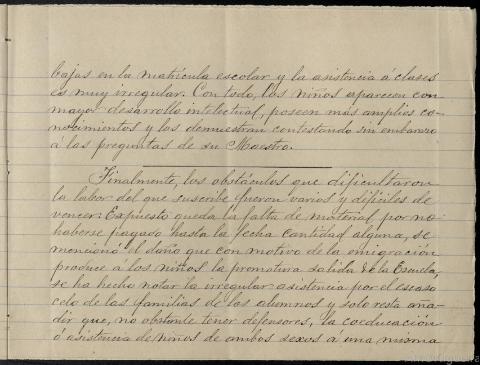 bajas en la matrícula escolar y la asistencia á clases
es muy irregular. Con todo, los niños aparecen con
mayor desarrollo intelectual, poseen más amplios co-
nocimientos y los demuestran contestando sin embarazo
á las preguntas de su Maestro.
Finalmente, los obstáculos que dificultaron
la labor del que suscribe fueron varios y difíciles de
vencer. Expuesto queda la falta de material por no
haberse pagado hasta la fecha cantidad alguna, se
mencionó el daño que con motivo de la emigración
produce á los niños la prematura salida de la Escuela,
se ha hecho notar la irregular asistencia por el escaso
celo de las familias de los alumnos y solo resta aña-
dir que, no obstante tener defensores, la coeducación
ó asistencia de niños de ambos sexos á una misma